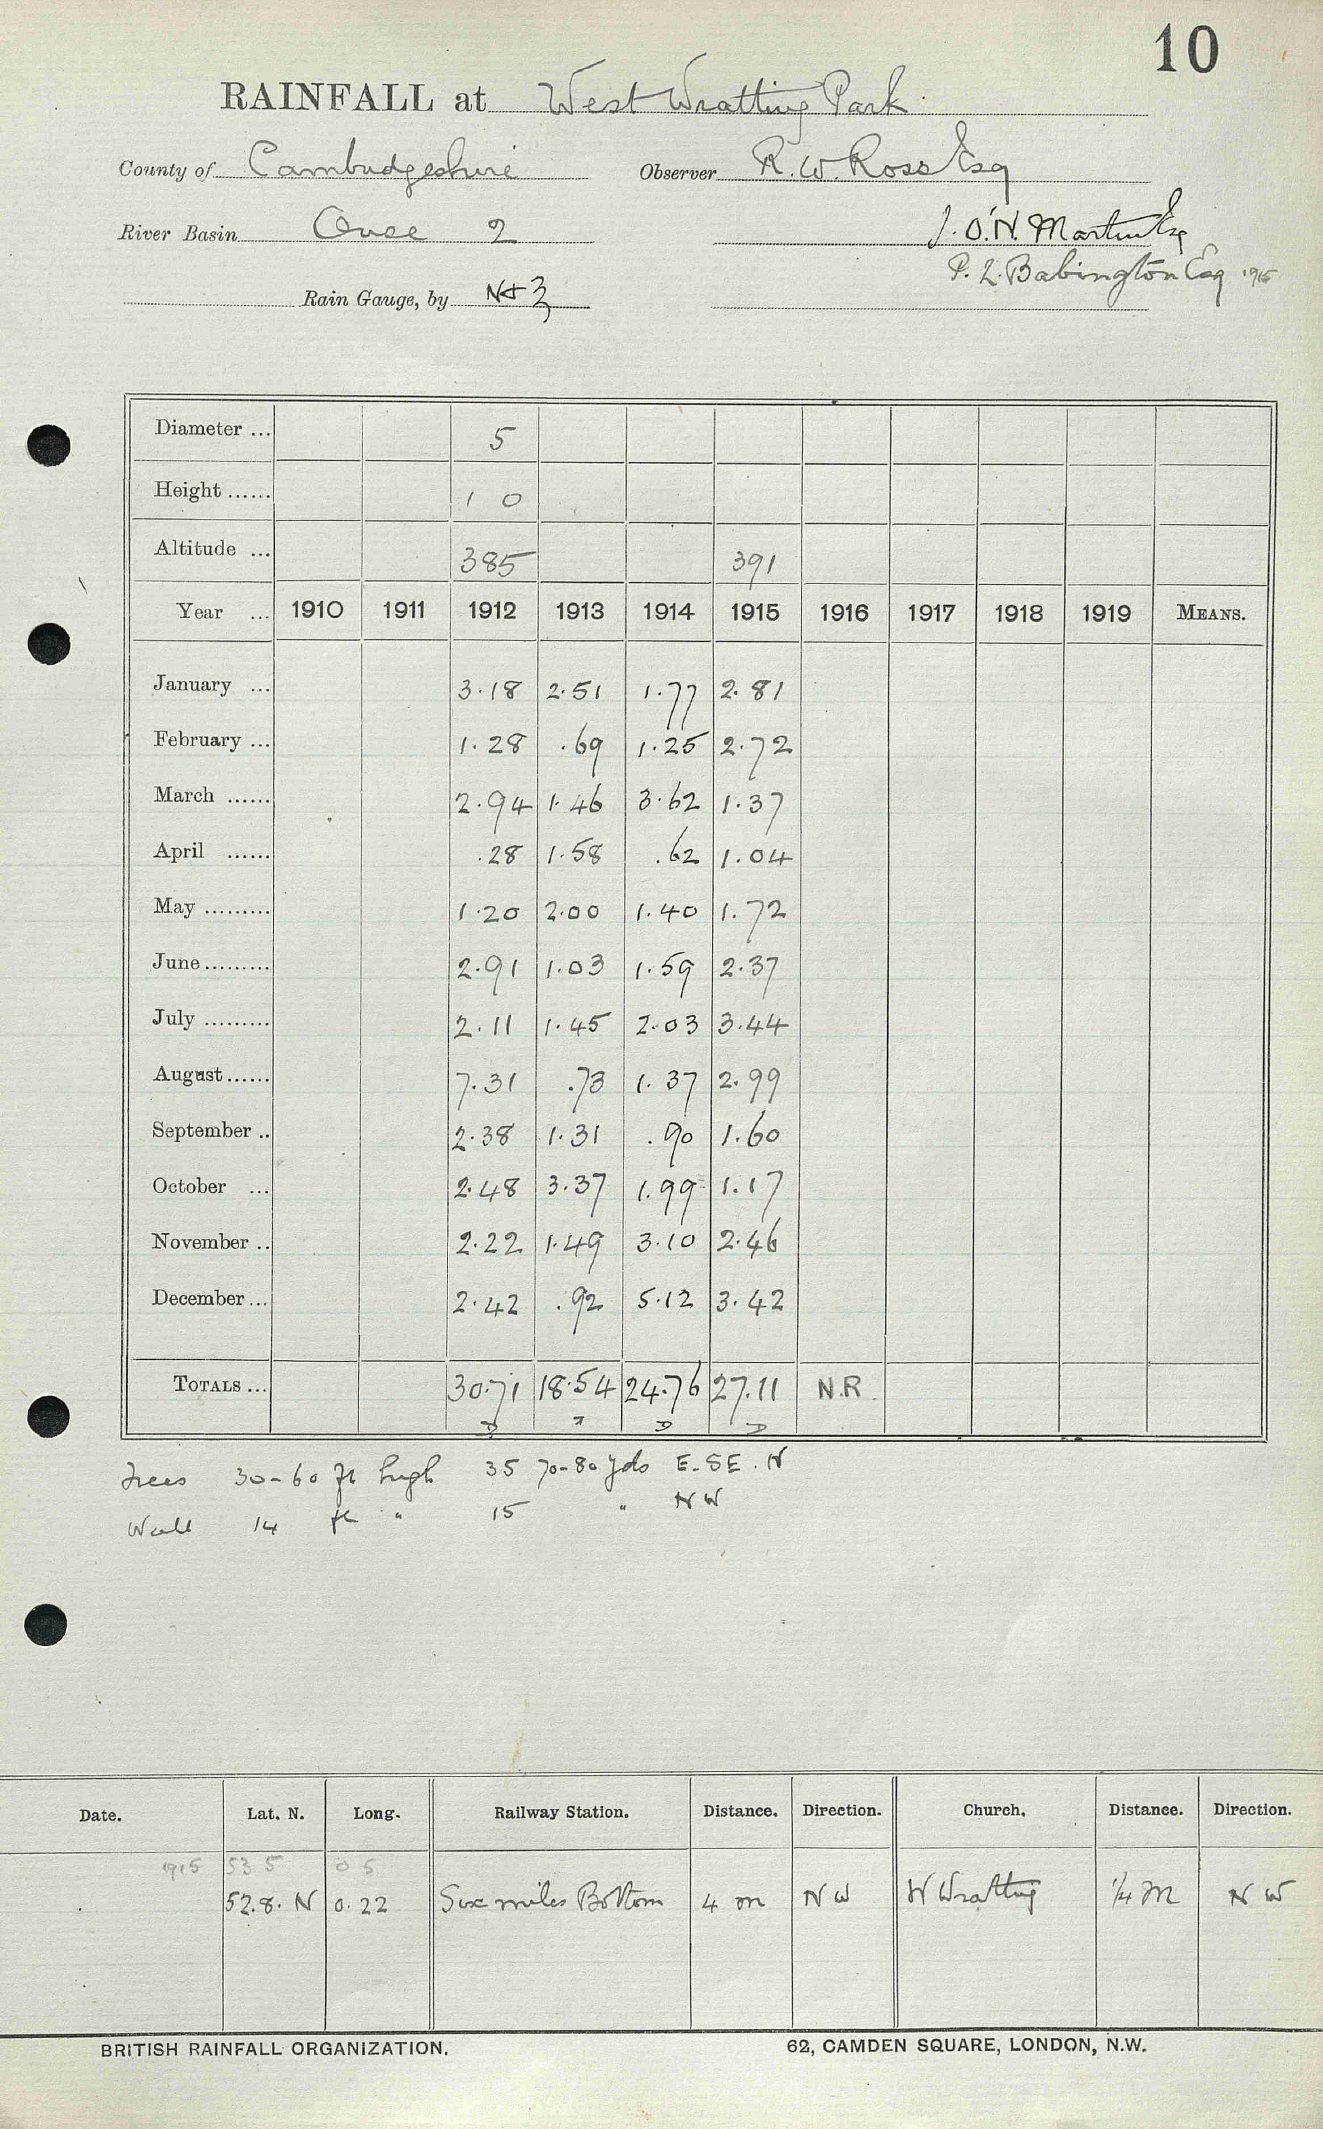 10
RAINFALL at West Wratting Park
County of Cambridgeshire Observer R. W. Ross Esq
River Basin Ouse 2 J. O'N. Martin Esq
P. L. Babington Esq 1915
Rain Gauge, by N & Z
Diameter ... 5
Height ...... 1 0
Altitude ... 385 391
Year ... 1910 1911 1912 1913 1914 1915 1916 1917 1918 1919 MEANS.
January ... 3.18 2.51 1.77 2.81
February ... 1.28 .69 1.25 2.72
March ...... 2.94 1.46 3.62 1.37
April ...... .28 1.58 .62 1.04
May ......... 1.20 2.00 1.40 1.72
June......... 2.91 1.03 1.59 2.37
July ......... 2.11 1.45 2.03 3.44
August...... 7.31 .73 1.37 2.99
September .. 2.38 1.31 .90 1.60
October ... 2.48 3.37 1.99 1.17
November .. 2.22 1.49 3.10 2.46
December... 2.42 .92 5.12 3.42
TOTALS ... 30.71 18.54 24.76 27.11 N.R.
Trees 30-60 ft high 35 70-80 yds E. SE. N
Wall 14 ft " 15 " NW
Date. Lat. N. Long. Railway Station. Distance. Direction. Church. Distance. Direction.
1915 53 5 0 5
52.8. N 0.22 Six miles Bottom 4 m NW W Wratting 1/4 M NW
BRITISH RAINFALL ORGANIZATION. 62, CAMDEN SQUARE, LONDON, N.W.